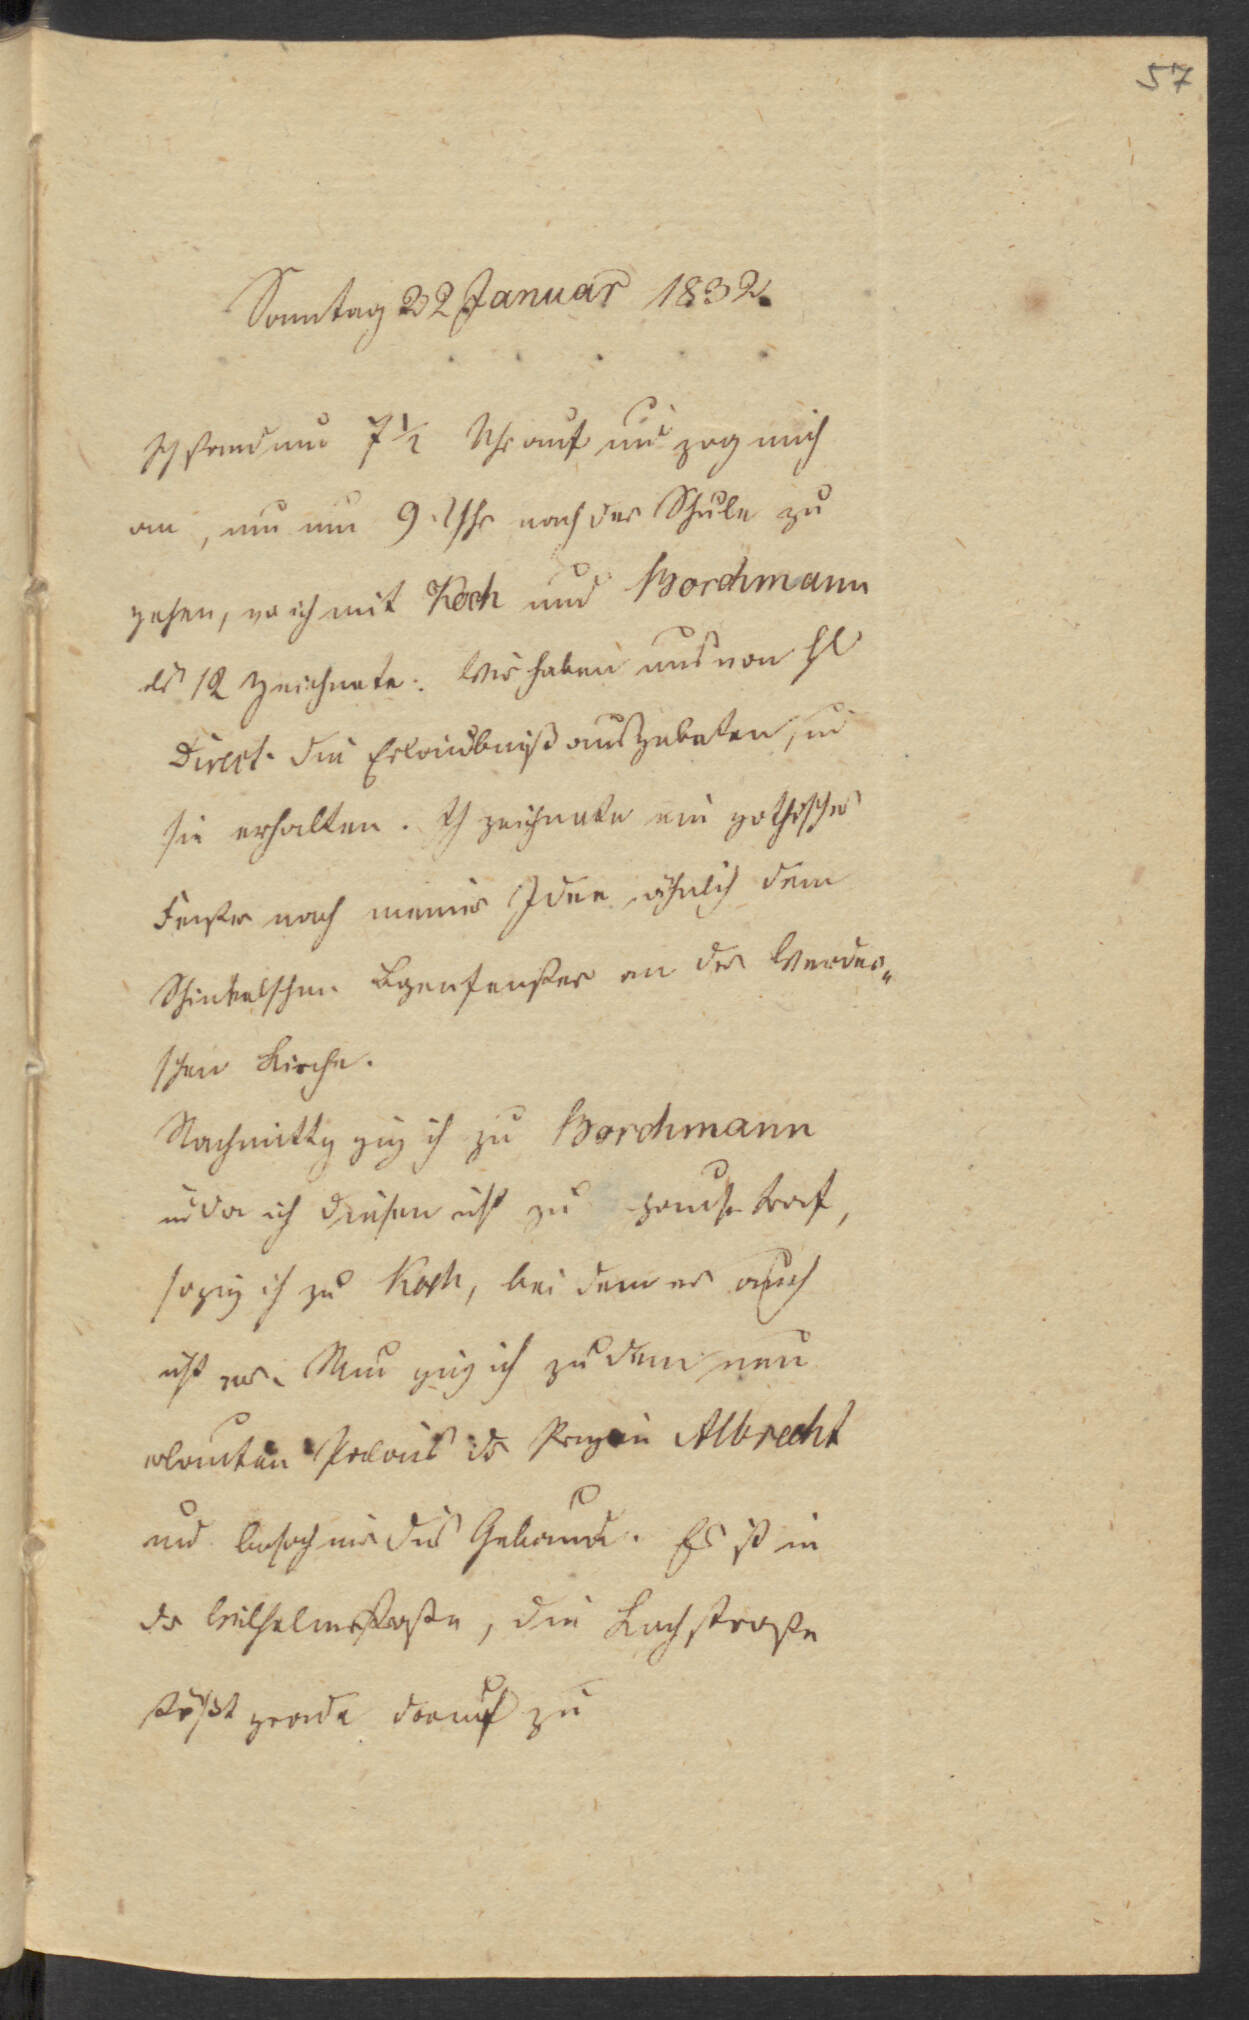 57
Sonntag 22 Januar 1832.
Ich stand um 7½ Uhr auf und zog mich
an, um um 9 Uhr nach der Schule zu
gehen, wo ich mit Koch und Borchmann
bis 12 zeichnete. Wir haben uns von H
Direct. die Erlaubniß ausgebeten, u
sie erhalten. Ich zeichnete ein gothisches
Fenster nach meiner Idee ähnlich dem
Schinkelschen Bogenfenster an der Werder„
schen Kirche.
Nachmittg ging ich zu Borchmann
u da ich diesen nicht zu Hause traf,
so ging ich zu Koch, bei dem er auch
nicht war. Nun ging ich zu dem neu
erbauten Palais des Prinzen Albrecht
und besah mir das Gebäude. Es ist in
der Wilhelmstraße, die Kochstraße
stößt gerade darauf zu